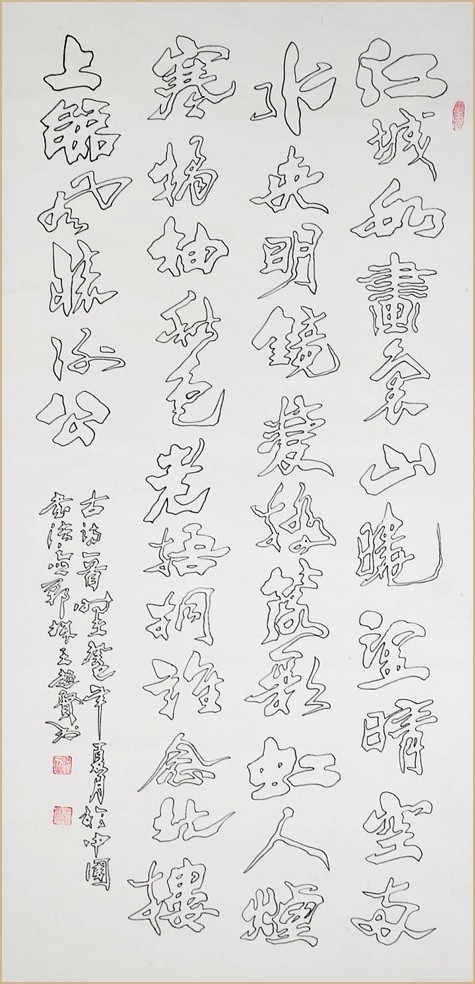 江城如畫裏山曉望晴空兩
水夾明鏡雙橋落彩虹人煙
寒橘柚秋色老梧桐誰念北樓
上臨風懷謝公
古詩一首年夏月於中國
書法之鄉